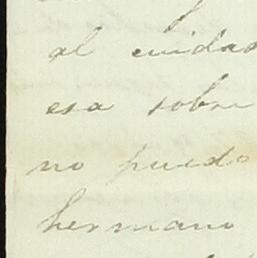 al cuidad
esa sobre
no puedo
hermano